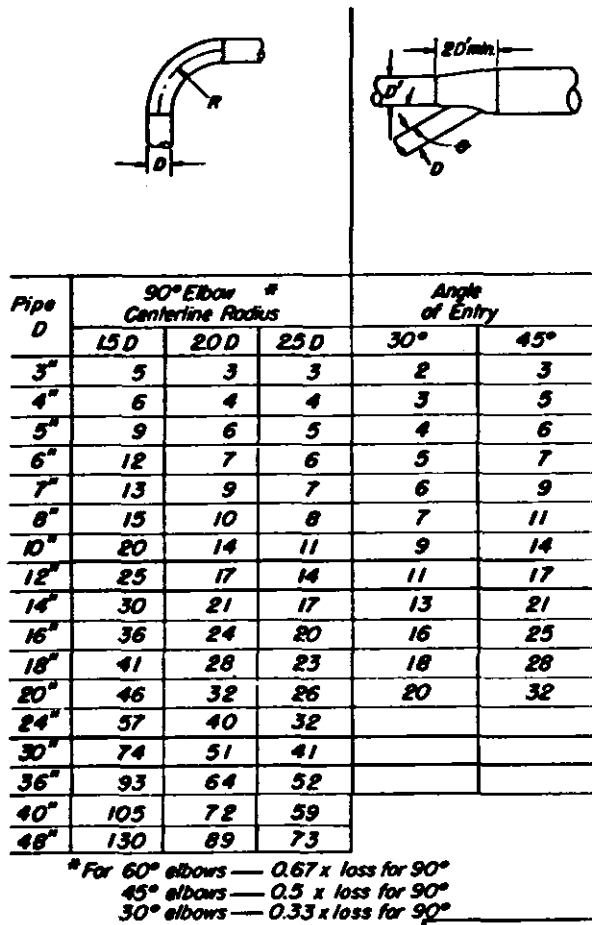 R
D
2D'min.
D'
θ
D
Pipe D
90° Elbow *
Centerline Radius
Angle
of Entry
1.5 D 2.0 D 2.5 D 30° 45°
3" 5 3 3 2 3
4" 6 4 4 3 5
5" 9 6 5 4 6
6" 12 7 6 5 7
7" 13 9 7 6 9
8" 15 10 8 7 11
10" 20 14 11 9 14
12" 25 17 14 11 17
14" 30 21 17 13 21
16" 36 24 20 16 25
18" 41 28 23 18 28
20" 46 32 26 20 32
24" 57 40 32
30" 74 51 41
36" 93 64 52
40" 105 72 59
48" 130 89 73
* For 60° elbows — 0.67 x loss for 90°
45° elbows — 0.5 x loss for 90°
30° elbows — 0.33 x loss for 90°